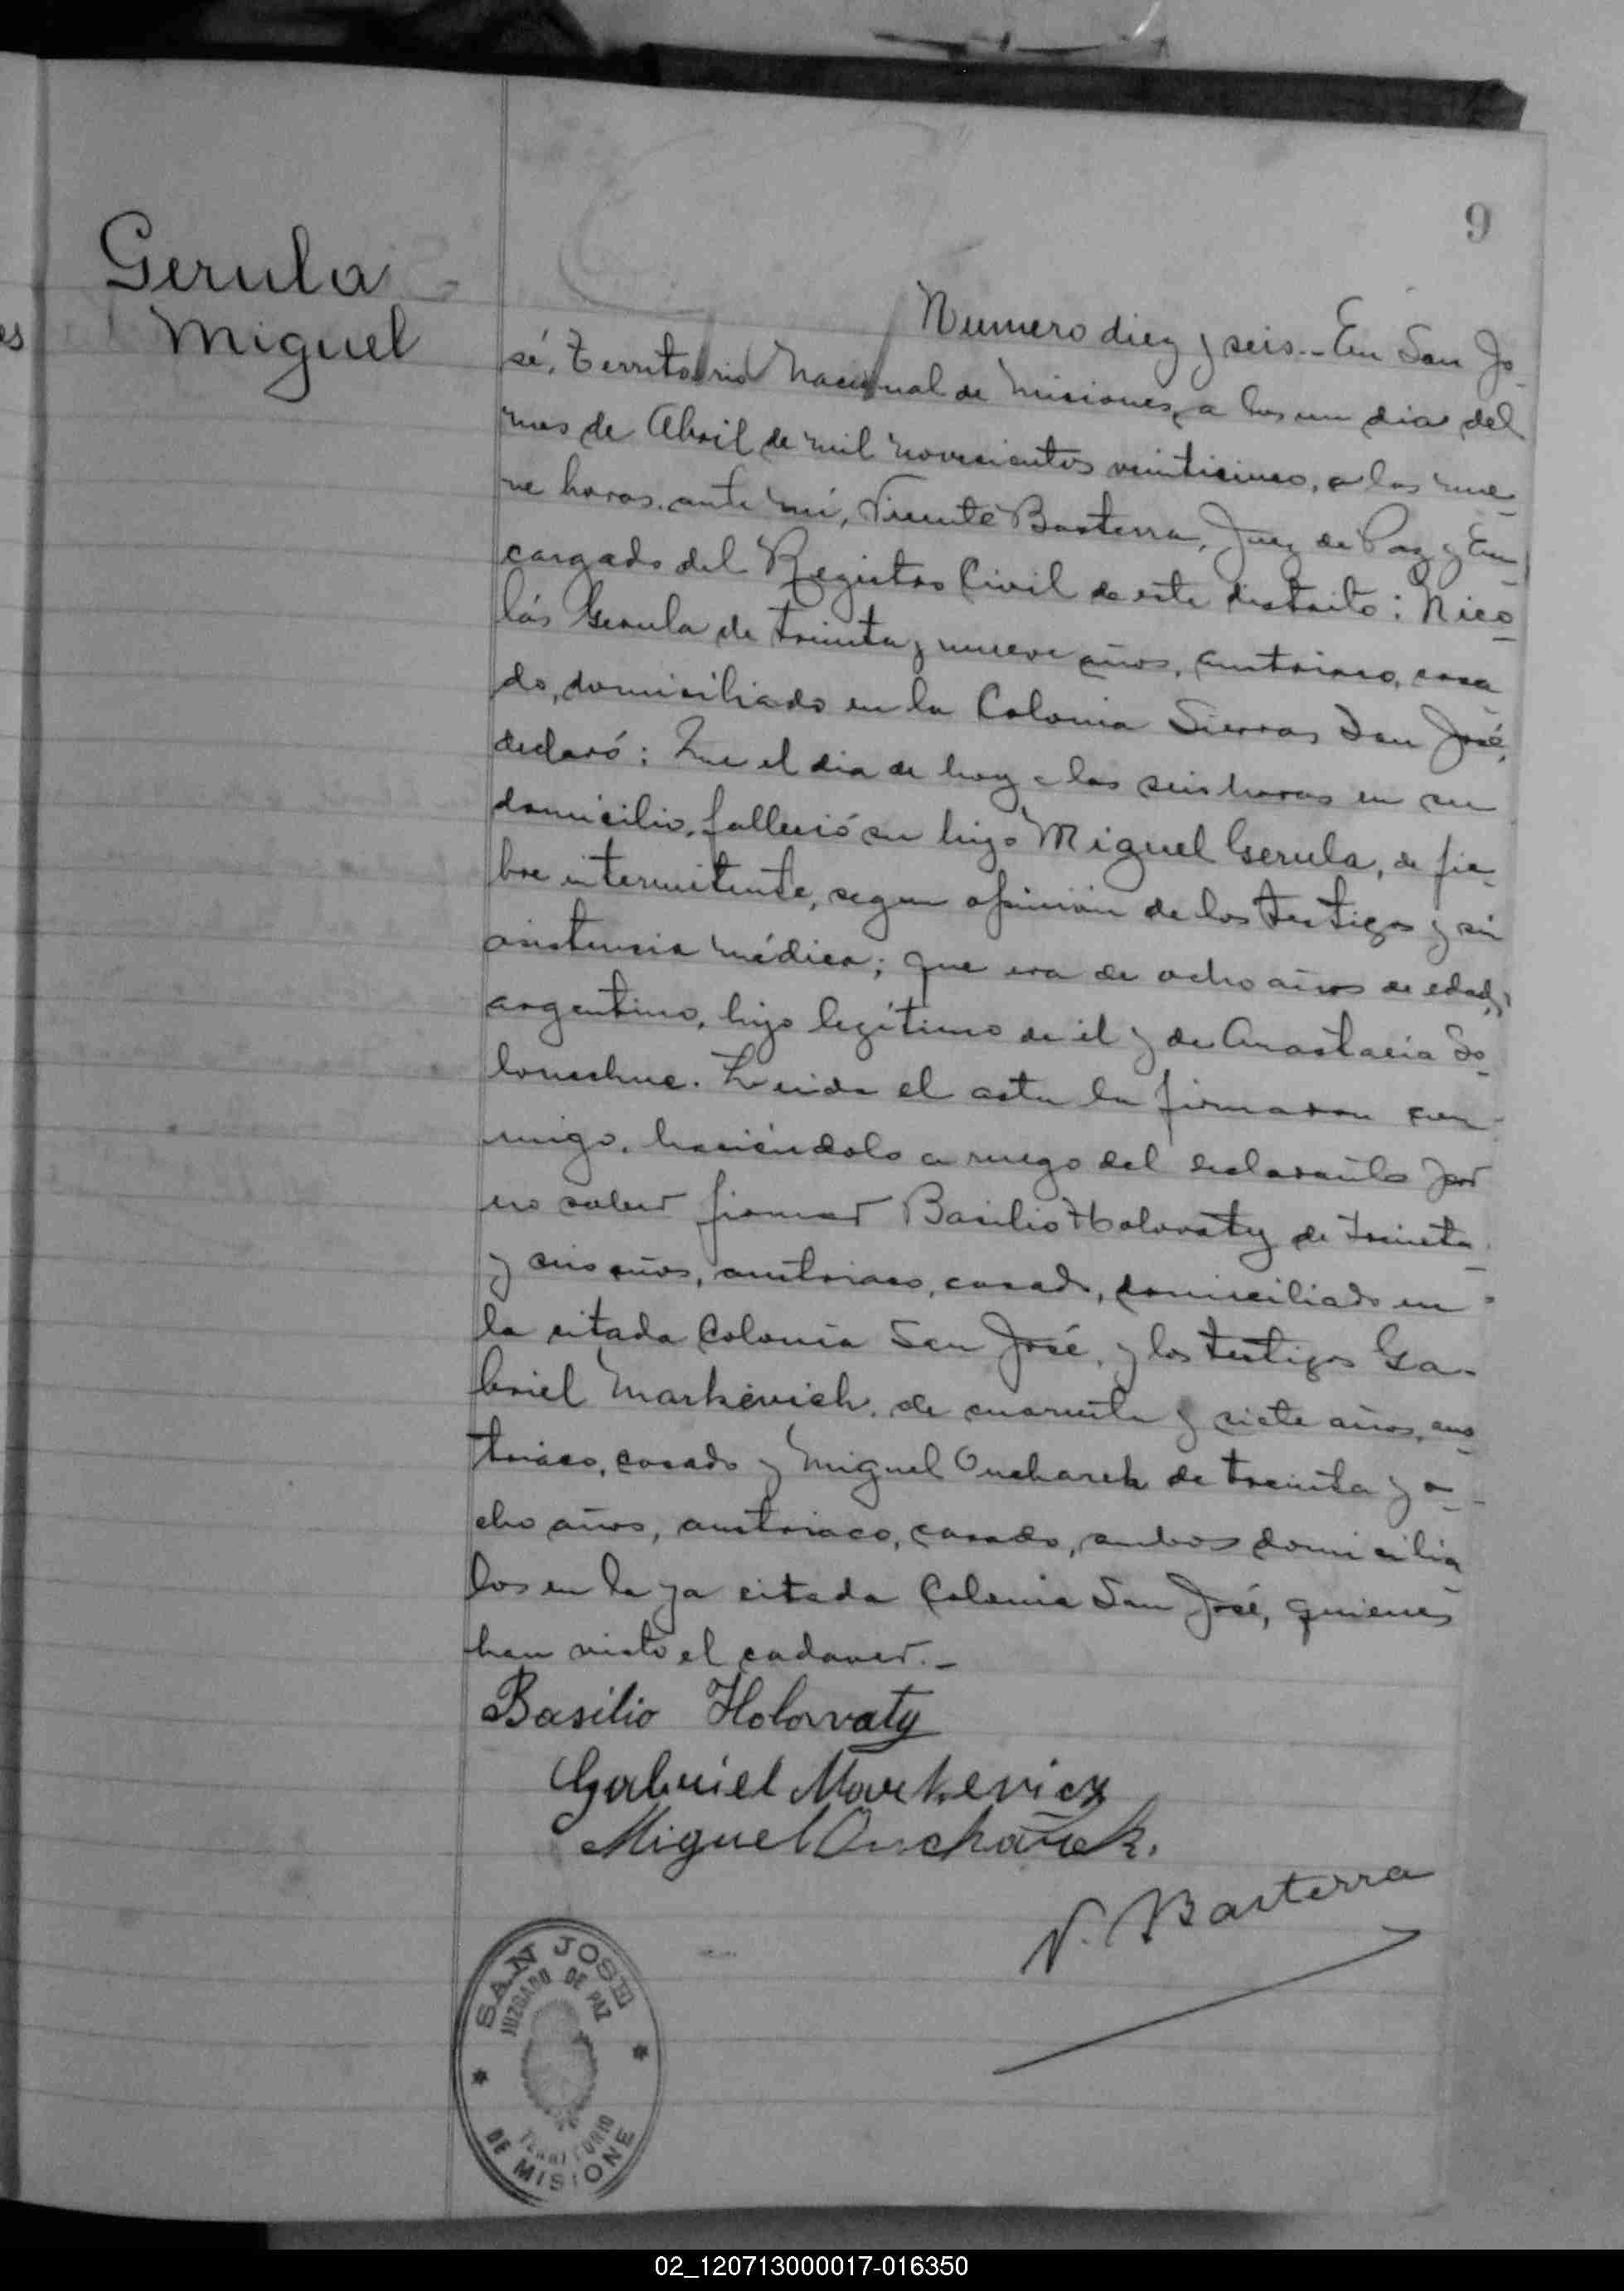 9
Gerula
Miguel
es
Numero diez y seis.- En San Jo-
sé, Territorio Nacional de Misiones, a los un dia del
mes de Abril de mil novecientos veinticinco, a las nue-
ve horas, ante mí, Vicente Basterra, Juez de Paz y En-
cargado del Registro Civil de este distrito: Nico-
lás Gerula de treinta y nueve años, austriaco, casa-
do, domiciliado en la Colonia Sierras San José,
declaró: Que el dia de hoy a las seis horas en su
domicilio, falleció su hijo Miguel Gerula, de fie-
bre intermitente, segun opinión de los testigos y sin
asistencia médica; que era de ocho años de edad,
argentino, hijo legítimo de él y de Anastacia So-
. Leida el acta la firmaron con-
migo, haciéndolo a ruego del declarante por
no saber firmar Basilio Holovaty de treinta
y seis años, austriaco, casado, domiciliado en
la citada Colonia San José, y los testigos Ga-
briel Markevich, de cuarenta y siete años, aus-
triaco, casado y Miguel Oncharek de treinta y o-
cho años, austriaco, casado, ambos domicilia-
los en la ya citada Colonia San José, quienes
han visto el cadaver.-
Basilio Holowaty
Gabriel Markevicz
Miguel Oncharek.
V. Basterra
SAN JOSE
JUZGADO DE PAZ
TERRITORIO
DE MISIONE
02_120713000017-016350